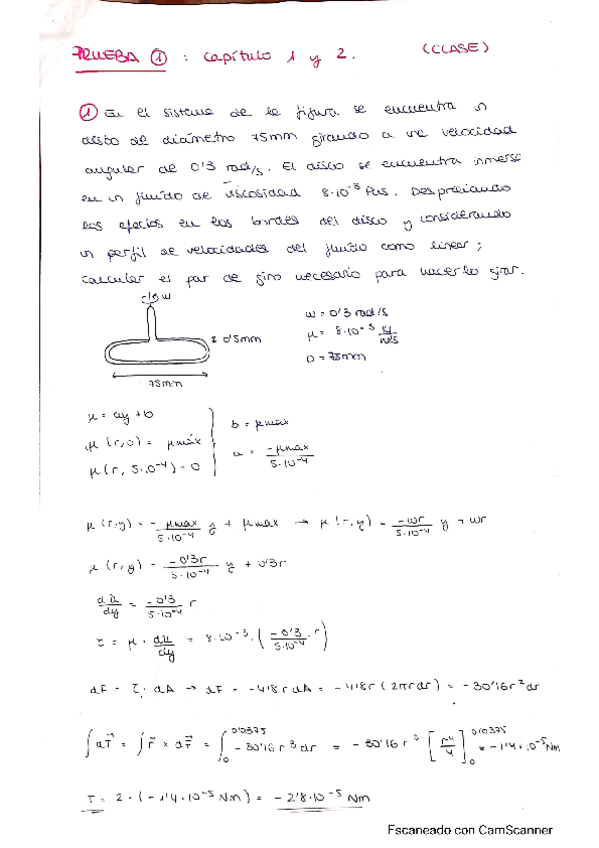 PRUEBA ① : capítulo 1 y 2. (CLASE)
① En el sistema de la figura se encuentra un
disco de diámetro 75mm girando a una velocidad
angular de 0'3 rad/s. El disco se encuentra inmerso
en un fluido de viscosidad 8·10⁻³ Pas. Despreciando
los efectos en los bordes del disco y considerando
un perfil de velocidades del fluido como lineal;
calcular el par de giro necesario para hacerlo girar.
w
w = 0'3 rad/s
0'5mm
μ = 8·10⁻³
D = 75mm
75mm
μ = ay + b
b = μmax
μ (r,0) = μmáx
a = -μmax / 5·10⁻⁴
μ (r, 5·10⁻⁴) = 0
μ (r,y) = - μmax / 5·10⁻⁴ y + μmax → μ (r,y) = -wr / 5·10⁻⁴ y + wr
μ (r,y) = -0'3r / 5·10⁻⁴ y + 0'3r
du / dy = -0'3 / 5·10⁻⁴ r
τ = μ · du / dy = 8·10⁻³ · ( -0'3 / 5·10⁻⁴ · r )
dF = τ · dA → dF = -4'8 r dA = -4'8 r (2πr dr) = -30'16 r² dr
∫ dT = ∫ r × dF = ∫₀^0'0375 -30'16 r³ dr = -30'16 r³ [ r⁴ / 4 ]₀^0'0375 = -1'4·10⁻⁵ Nm
T = 2 · (-1'4·10⁻⁵ Nm) = -2'8·10⁻⁵ Nm
Escaneado con CamScanner